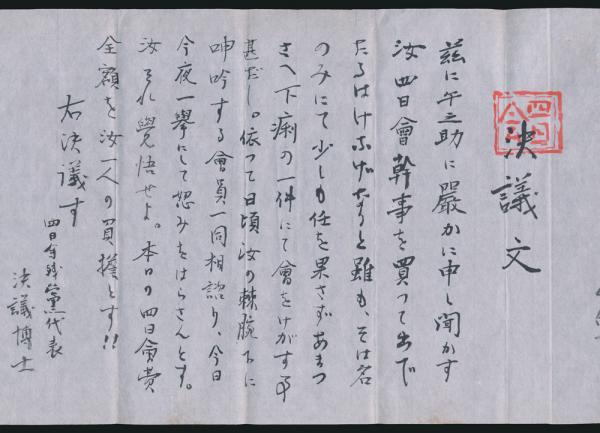 決議文
四日會
茲に午之助に嚴かに申し聞かす
汝四日會幹事を買つて出で
たるはけなげなりと雖も、そは名
のみにて少しも任を果さずあまつ
さへ下痢の一件にて會をけがす事
甚だし。依つて日頃汝の棘腕下に
呻吟する會員一同相諮り、今日
今夜一擧にして怨みをはらさんとす。
汝それ覺悟せよ。本日の四日會費
全額を汝一人の負擔とす!!
右決議す
四日會 黨代表
決議博士